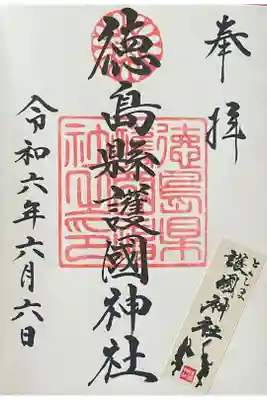 奉拝
徳島縣護國神社
令和六年六月六日
徳島県
社之印
とくしま
護國神社